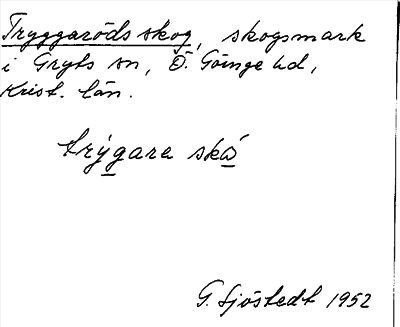 Tryggaröds skog, skogsmark
i Gryts sn, Ö. Göinge hd,
Krist. län.
trýgara skå
G. Sjöstedt 1952